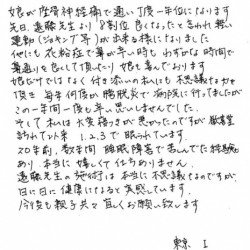 娘が坐骨神経痛で通い丁度一年位になります
先日、遠藤先生より8割位良くなったと言われ軽い
運動(ジョギング等)が出来る様になりました
他にも花粉症で鼻が辛い時も わずかな時間で
鼻通りを良くして頂いたり 娘も喜んでおります
娘だけではなく付き添いの私にも不思議なもので
頂き 毎年何度か高熱で病院に行ってましたが
この一年間一度も辛い思いしませんでした
そして私は大変寝つきが悪かったのですが
訪れて以来 1.2.3で眠られています
20年前、数年間睡眠障害で苦しんだ経験も
あり、本当に嬉しくて仕方ありません
遠藤先生の施術は本当に不思議なもですが、
日に日に健康になると実感しています
今後も親子共々宜しくお願い致します
東京 I